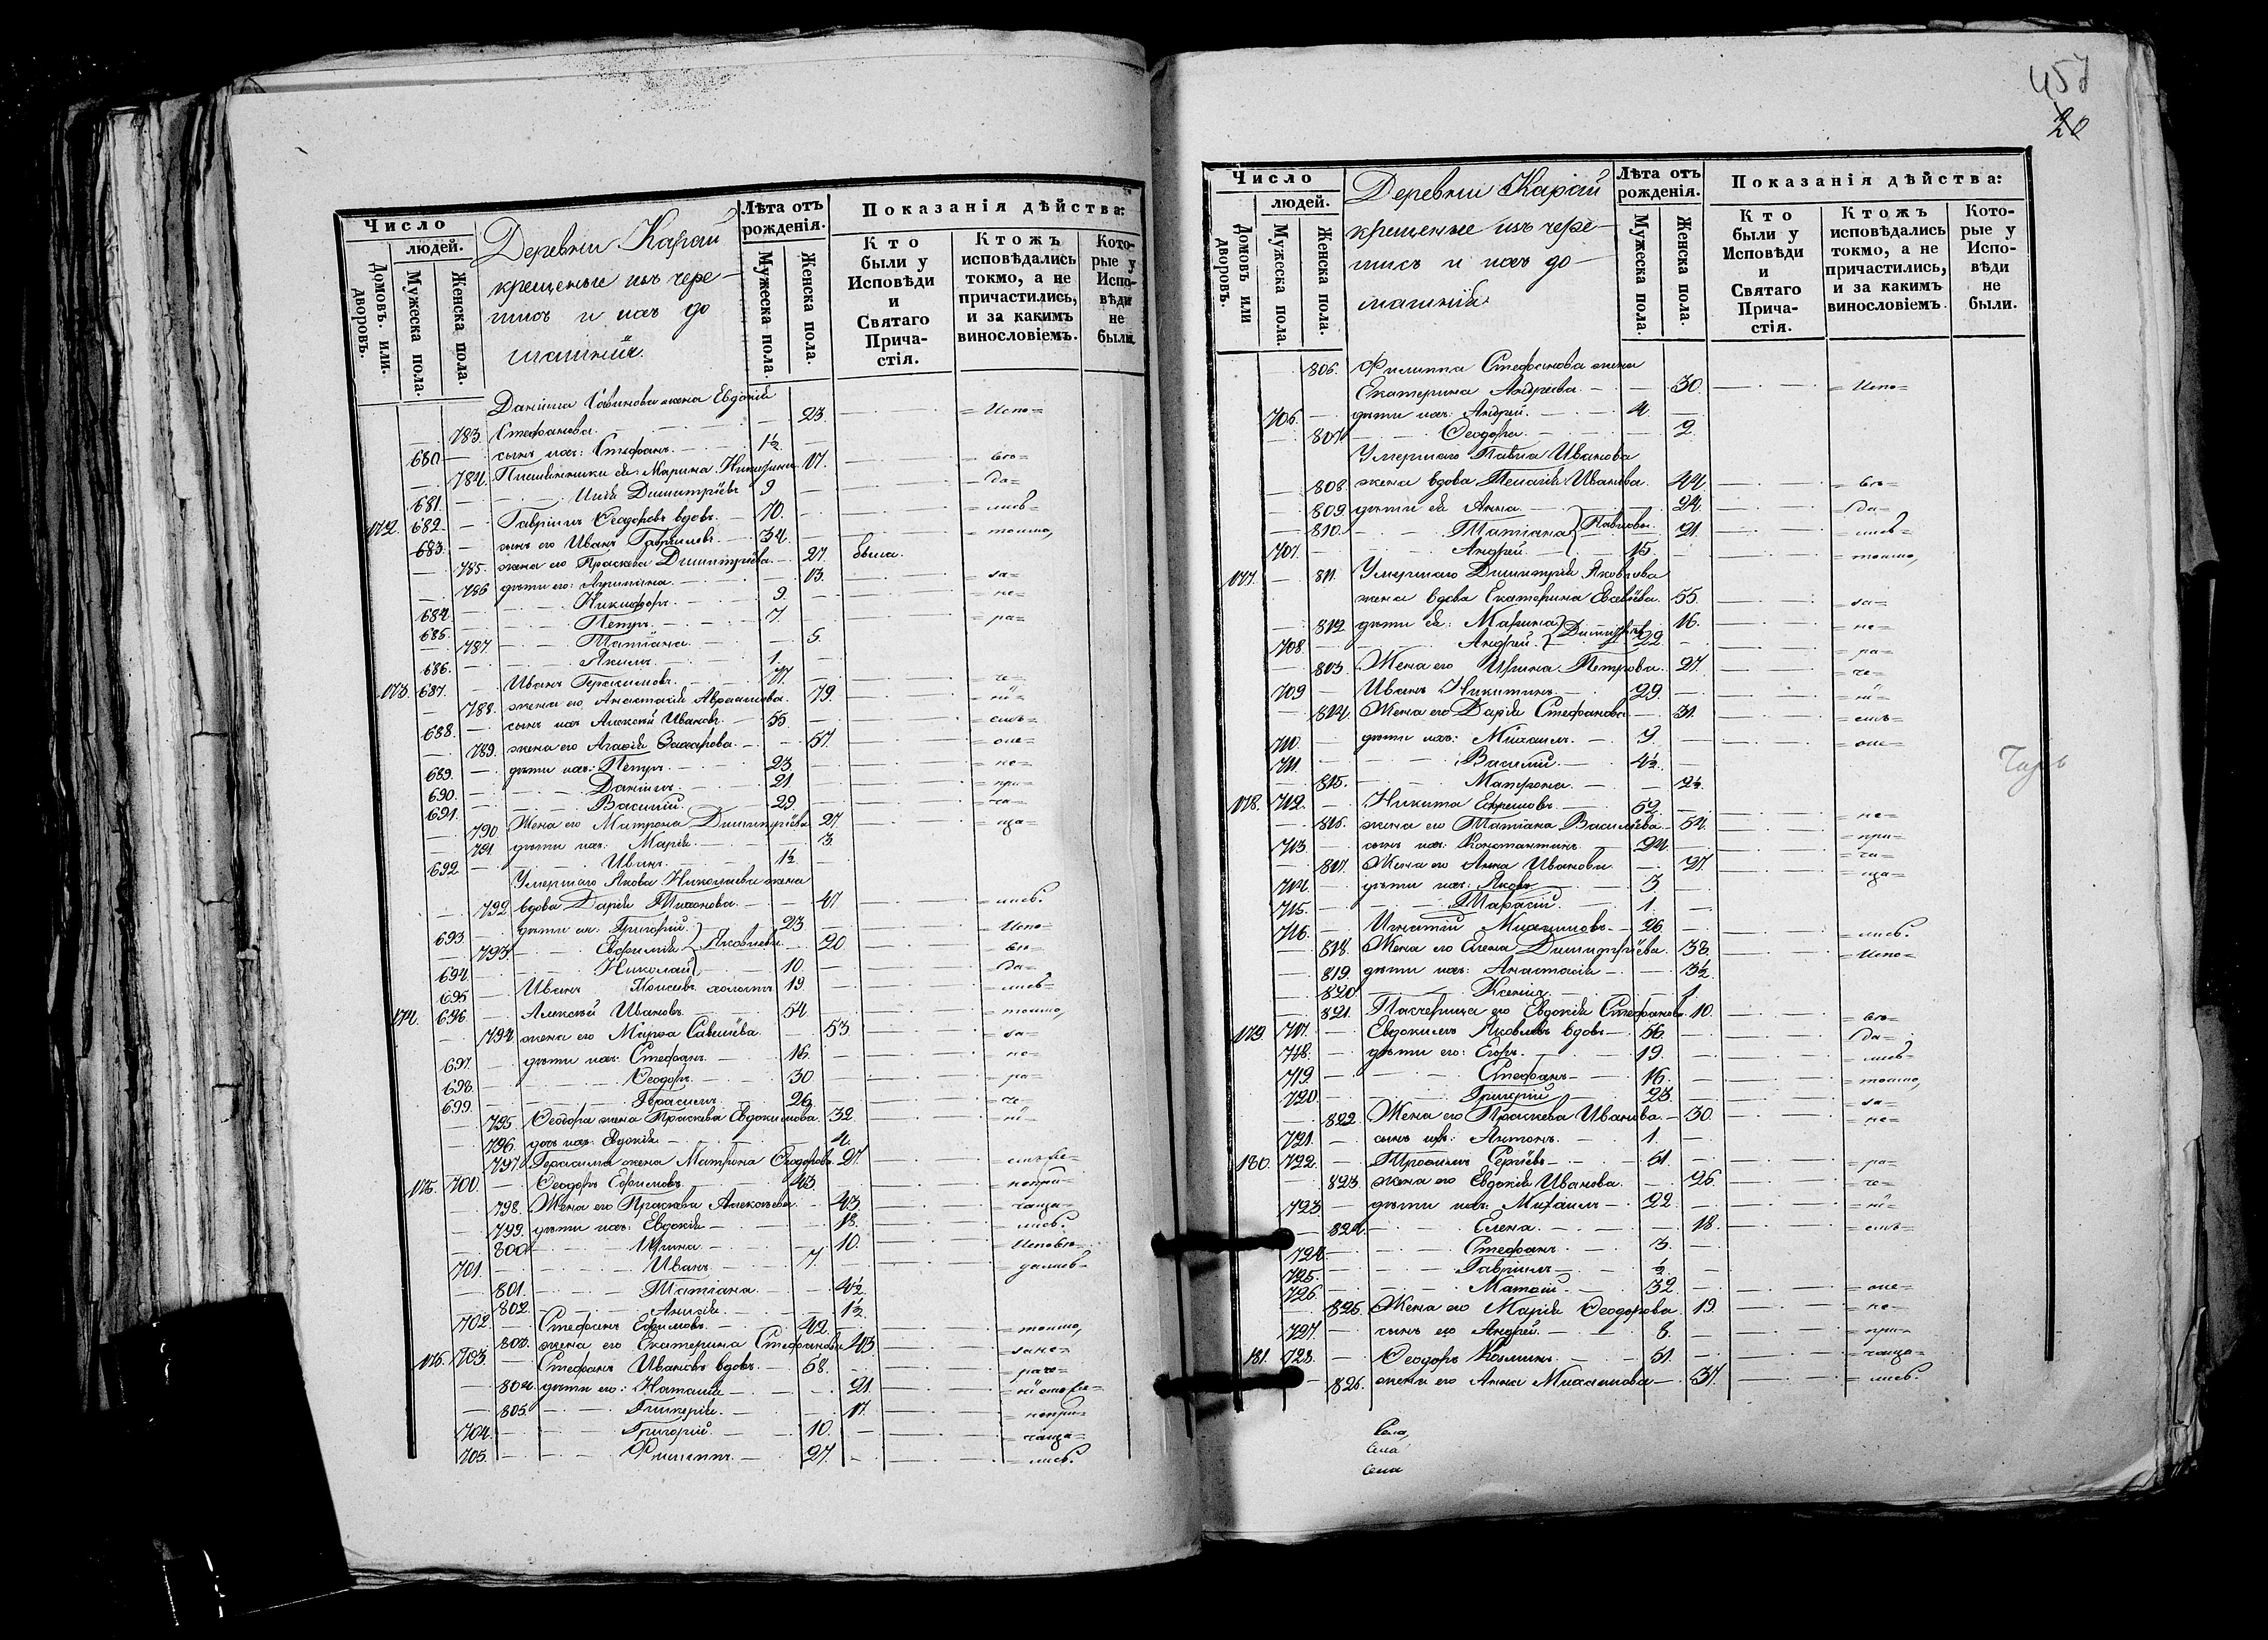 Число
людей.
Домовъ или дворовъ.
Мужеска пола.
Женска пола.
Деревни Карай
крещеные изъ чере-
мисъ и ихъ до
машніи.
Лѣта отъ рожденія.
Мужеска пола.
Женска пола.
Показанія дѣйства:
Кто были у Исповѣди и Святаго Прича-стія.
Ктожъ исповѣдались токмо, а не причастились, и за какимъ винословіемъ.
Кото-рые у Испо-вѣди не были.
Даніила Савинова жена Евдокія
— 783. Стефанова. — 23. = Испо=
680 — сынъ ихъ: Стефанъ. 1½ —
— 784. Марина 17. = вѣ=
681. — Димитріевъ 9 — = да=
172. 682. — Гавріилъ Ѳеодоровъ вдовъ. 70. — = лись=
683. — сынъ его Иванъ Гавриловъ. 34. — = токмо,
— 785. жена его Праскева Димитріева. — 27. была.
— 786 дѣти его: — 13. = за=
684. — Никифоръ. 9. — = не=
685. — Петръ. 7. — = ра=
— 787. Татіана. — 5.
686. — Акимъ. 1. —
173. 687. — Иванъ Герасимовъ. 77. — = че=
— 788. жена его Анастасія Авраамова. 79. = ні=
688. — сынъ ихъ Алексѣй Ивановъ. 55 — = емъ=
— 789. жена его Агаѳія Захарова. — 57. = опе=
689. — дѣти ихъ: Петръ. 23. — = не=
690. — Даніилъ. 21. — = при=
691. — Василій. 29. — = ча=
— 790. Жена его Матрона Димитріева 27. = ща=
— 791 дѣти ихъ: Марія. — 3.
692 — Иванъ. 1½ —
Умершаго Якова Николаева жена
— 792 вдова Дарія Тихонова. — 47 = лись.
693 — дѣти ея: Григорій. 23 = Испо=
— 793 Евфимія Яковлевы. — 20 = вѣ=
694. — Николай 10. — = да=
695 — Иванъ Моисеевъ холостъ 19. — = лись=
174. 696. — Алексѣй Ивановъ. 54. — = токмо,
— 794. жена его Марѳа Савельева. — 53. = за=
697. — дѣти ихъ: Стефанъ. 16. — = не=
698. — Ѳеодоръ. 30 — = ра=
699. — Герасимъ. 26. — = че=
— 795. Ѳеодора жена Праскева Евдокимова. 32. = ні=
— 796. дочь ихъ: Евдокія — 4.
— 797. Герасима жена Матрона Ѳеодорова. 27.
175. 700. — Ѳеодоръ Ефимовъ. 43. = непри=
— 798. Жена его Праскева Алексѣева. — 43. = чаща=
— 799. дѣти ихъ: Евдокія — 18. = лись.
— 800. Ирина. — 10. = Исповѣ=
701. — Иванъ. 7. — = дались=
— 801. Татіана. — 4½
— 802. — 1½
702. — Стефанъ Ефимовъ. 42. = токмо,
— 803. жена его Екатерина Стефанова 43 = зане=
176. 703. — Стефанъ Ивановъ вдовъ. 68. = раче=
— 804. дѣти его: Наталія — 21.
— 805. Гликерія. — 17. = непри=
704. — Григорій. 10. — = чаща=
705. — Филиппъ. 27. — = лись.
457
20
Число
людей.
Домовъ или дворовъ.
Мужеска пола.
Женска пола.
Деревни Карай
крещеные изъ чере-
мисъ и ихъ до-
машніи.
Лѣта отъ рожденія.
Мужеска пола.
Женска пола.
Показанія дѣйства:
Кто были у Исповѣди и Святаго Прича-стія.
Ктожъ исповѣдались токмо, а не причастились, и за какимъ винословіемъ.
Кото-рые у Испо-вѣди не были.
806. Филиппа Стефанова жена
Екатерина Андреева. — 30. = Испо=
706. — дѣти ихъ: Андрей. 4. —
— 807. Ѳеодора. — 2.
Умершаго Павла Иванова
— 808. жена вдова Пелагія Иванова. 44. = вѣ=
— 809 дѣти ея Анна. 24. = да=
— 810. Татіана Павловы. 21. = лись=
707. — Андрей. 15. — = токмо,
177. — 811. Умершаго Димитрія Яковлева
жена вдова Екатерина 55. = за=
— 812 дѣти ея: Марина 16. = не=
708. — Андрей. 22. — = ра=
— 813. Жена его Ирина Петрова. 27. = че=
709 — Иванъ Никитинъ. 29. — = ні=
— 814. Жена его Дарія Стефанова — 31. = емъ=
710. — дѣти ихъ: Михаилъ. 9. — = опе=
711. — Василій. 4½ —
— 815. Матрона. — 2½.
178. 712. — Никита Ефремовъ. 62. —
— 816. жена его Татіана Василіева. — 54. = не=
713. — сынъ ихъ: Константинъ. 24. — = при=
— 817. Жена его Анна Иванова. — 27. = ча=
714. — дѣти ихъ: Яковъ 3 — = ща=
715. — Тарасій. 1. —
716. — Игнатій Михаиловъ. 26. — = лись.
— 818. Жена его Елена Димитріева. 38. = Испо=
— 819. дѣти ихъ: Анастасія — 3½
— 820. Ксенія. — 1.
— 821. Падчерица его Евдокія Стефанова. 10. = вѣ=
179. 717. — Евдокимъ Яковлевъ вдовъ — 56. = да=
718. — дѣти его: Егоръ. 19. — = лись=
719. — Стефанъ — 16. — = токмо,
720. — Григорій 23. — = за=
— 822. Жена его Праскева Иванова. — 30. = не=
721. — сынъ ихъ: Антонъ. 1. —
180. 722. — Трофимъ Сергіевъ — 51. — = ра=
— 823. жена его Евдокія Иванова. — 26. = че=
723. — дѣти ихъ: Михаилъ — 22. — = ні=
— 824. Елена. — 18. = емъ=
724. — Стефанъ. 3. —
725. — Гавріилъ — ½. —
726. — Матѳій. 32. — = опе=
— 825. Жена его Марія Ѳеодорова. 19. = не=
727. — сынъ его Андрей. 8. — = при=
181. 728. — Ѳеодоръ Козминъ. 51. — = чаща=
— 826. жена его Анна Михаилова — 37. = лись.